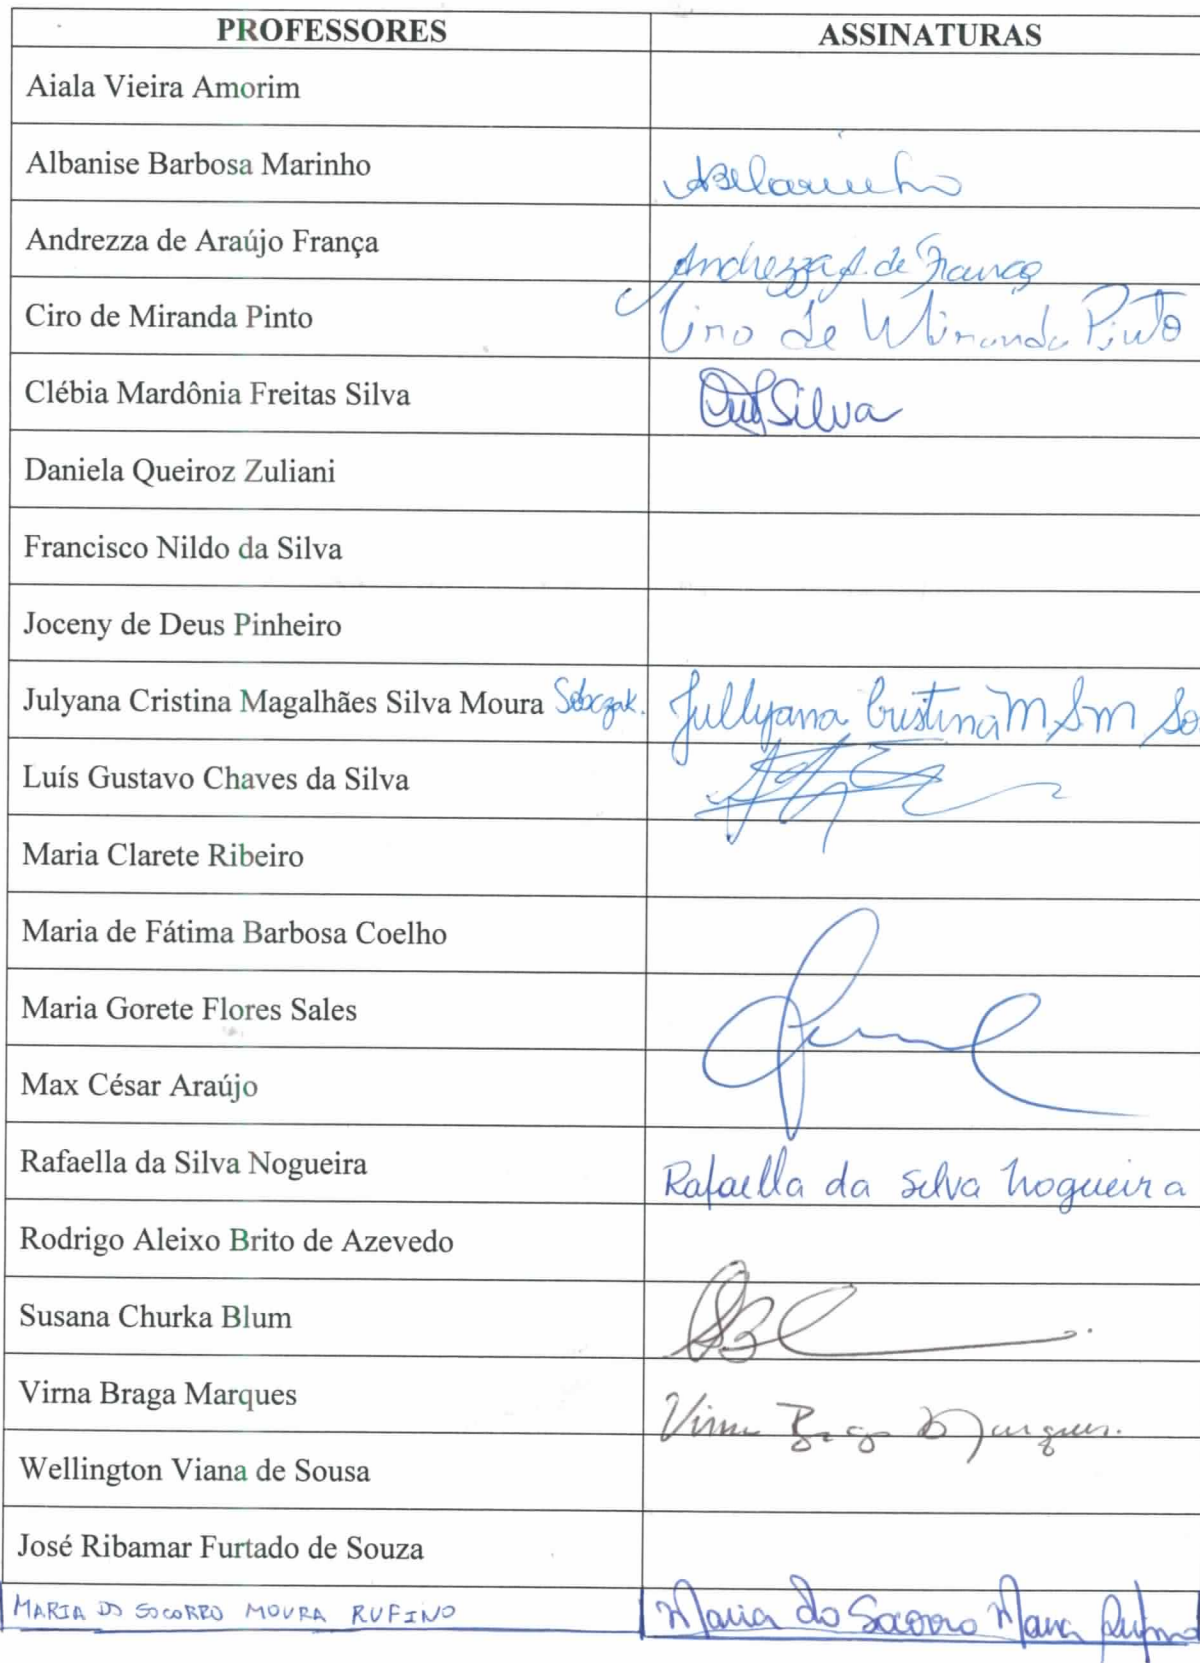 PROFESSORES ASSINATURAS
Aiala Vieira Amorim
Albanise Barbosa Marinho ABMarinho
Andrezza de Araújo França Andrezza A. de França
Ciro de Miranda Pinto Ciro de Miranda Pinto
Clébia Mardônia Freitas Silva Silva
Daniela Queiroz Zuliani
Francisco Nildo da Silva
Joceny de Deus Pinheiro
Julyana Cristina Magalhães Silva Moura Sobczak. Jullyana Cristina M S M So
Luís Gustavo Chaves da Silva
Maria Clarete Ribeiro
Maria de Fátima Barbosa Coelho
Maria Gorete Flores Sales
Max César Araújo
Rafaella da Silva Nogueira Rafaella da Silva Nogueira
Rodrigo Aleixo Brito de Azevedo
Susana Churka Blum
Virna Braga Marques Virna Braga Marques.
Wellington Viana de Sousa
José Ribamar Furtado de Souza
MARIA DO SOCORRO MOURA RUFINO Maria do Socorro Moura Rufino